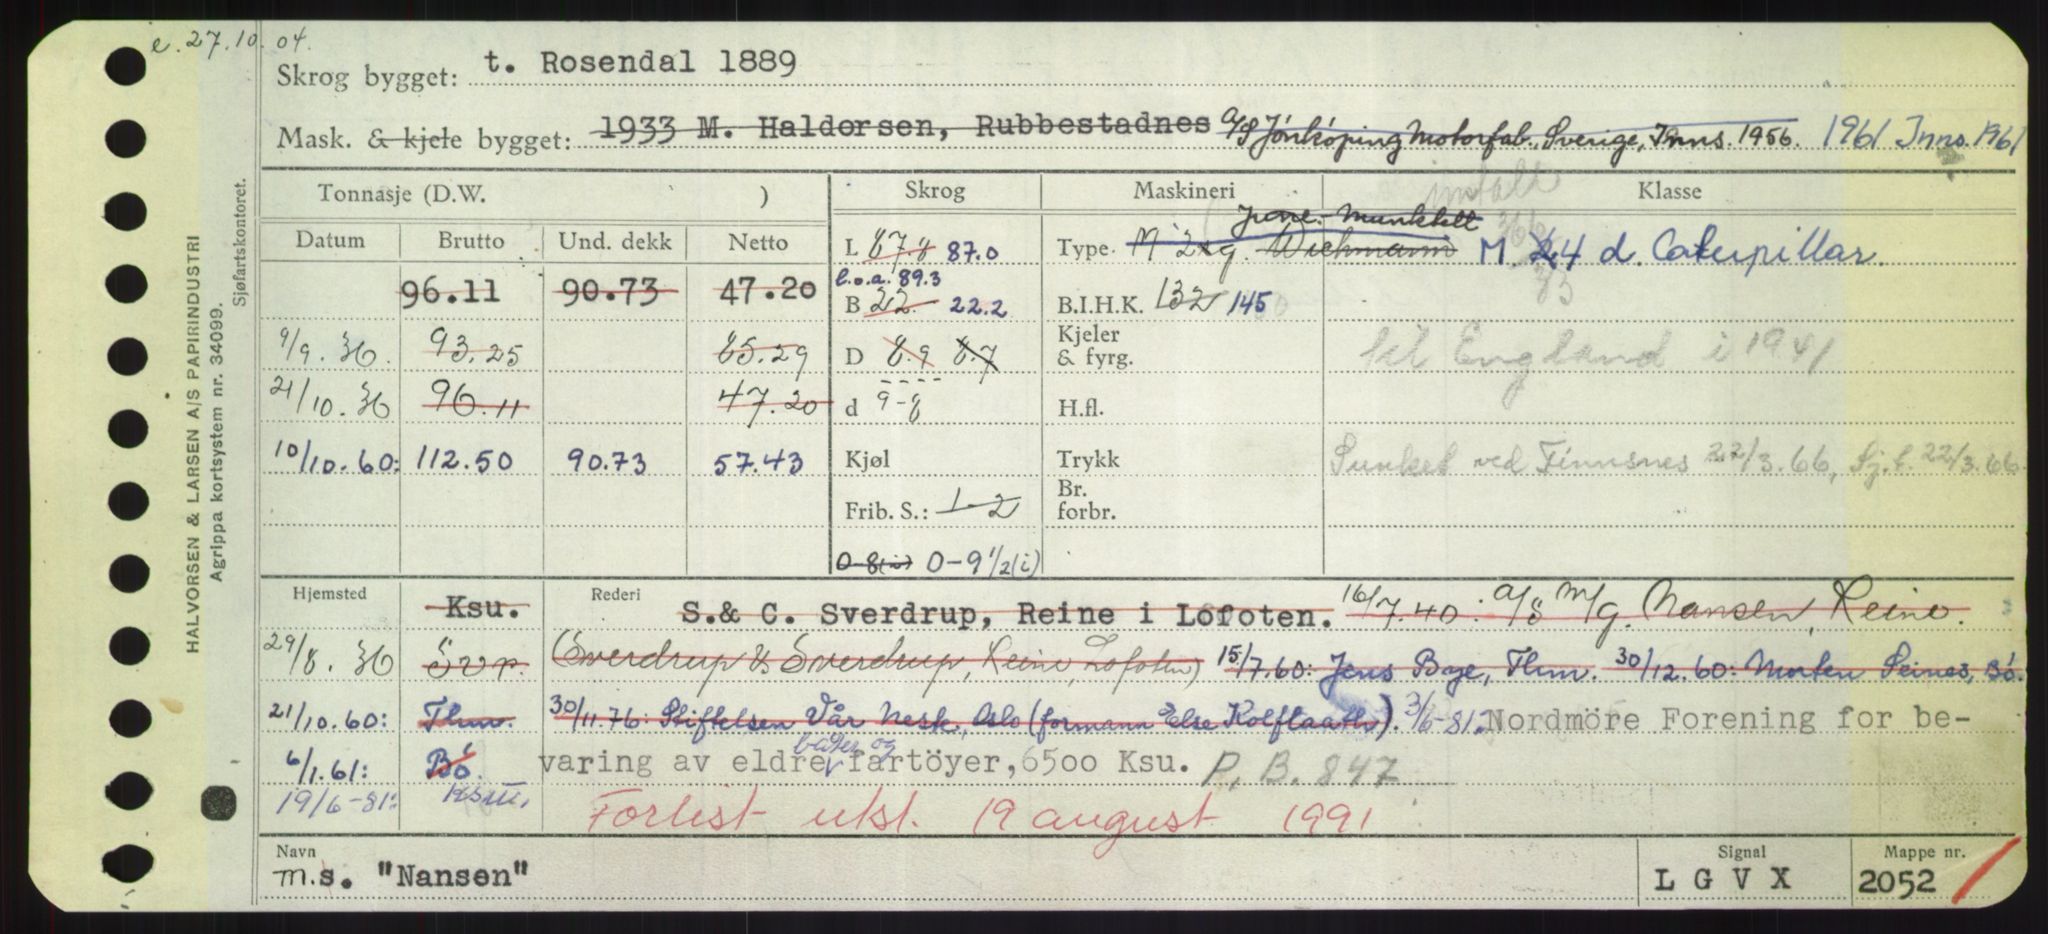 e. 27.10.04.
Skrog bygget: t. Rosendal 1889
Mask. & kjele bygget: 1933 M. Haldorsen, Rubbestadnes A/S Jönköping Motorfab., Sverige, Inns. 1956. 1961 Inns. 1961
HALVORSEN & LARSEN A/S PAPIRINDUSTRI
Agrippa kortsystem nr. 34099.
Sjøfartskontoret.
Tonnasje (D.W. )
Datum Brutto Und. dekk Netto
96.11 90.73 47.20
9/9. 36. 93.25 85.29
21/10. 36 96.11 47.20
10/10. 60: 112.50 90.73 57.43
Skrog
L 87.8 87.0
l.o.a. 89.3
B 22. 22.2
D 8.9 8.7
d 9-8
Kjøl
Frib. S.: 1-2
0-8(i) 0-9 1/2(i)
Maskineri
June-Munktell
Type. M 2 g. Wichmann M. 4 d. Caterpillar.
B.I.H.K. 132 145
Kjeler
& fyrg.
H.fl.
Trykk
Br.
forbr.
Klasse
til England i 1941
Sunket ved Finnsnes 22/3.66, Sj.f. 22/3.66
Hjemsted Ksu. Rederi S.& C. Sverdrup, Reine i Lofoten. 16/7.40: A/S M/g. Nansen, Reine.
29/8. 36 Svr. (Sverdrup & Sverdrup, Reine, Lofoten) 15/7.60: Jens Bage, Thm. 30/12.60: Morten Seines, Bö.
21/10.60: Thm. 30/11.76: Stiftelsen Vår Nesk, Oslo (formann Else Kolflaath). 3/6-81: Nordmöre Forening for be-
6/1.61: Bö. varing av eldre båter og fartöyer, 6500 Ksu. P.B. 847
19/6-81: Ksu. Forlist ukst. 19 august 1991
Navn
m.s. "Nansen"
Signal
L G V X
Mappe nr.
2052